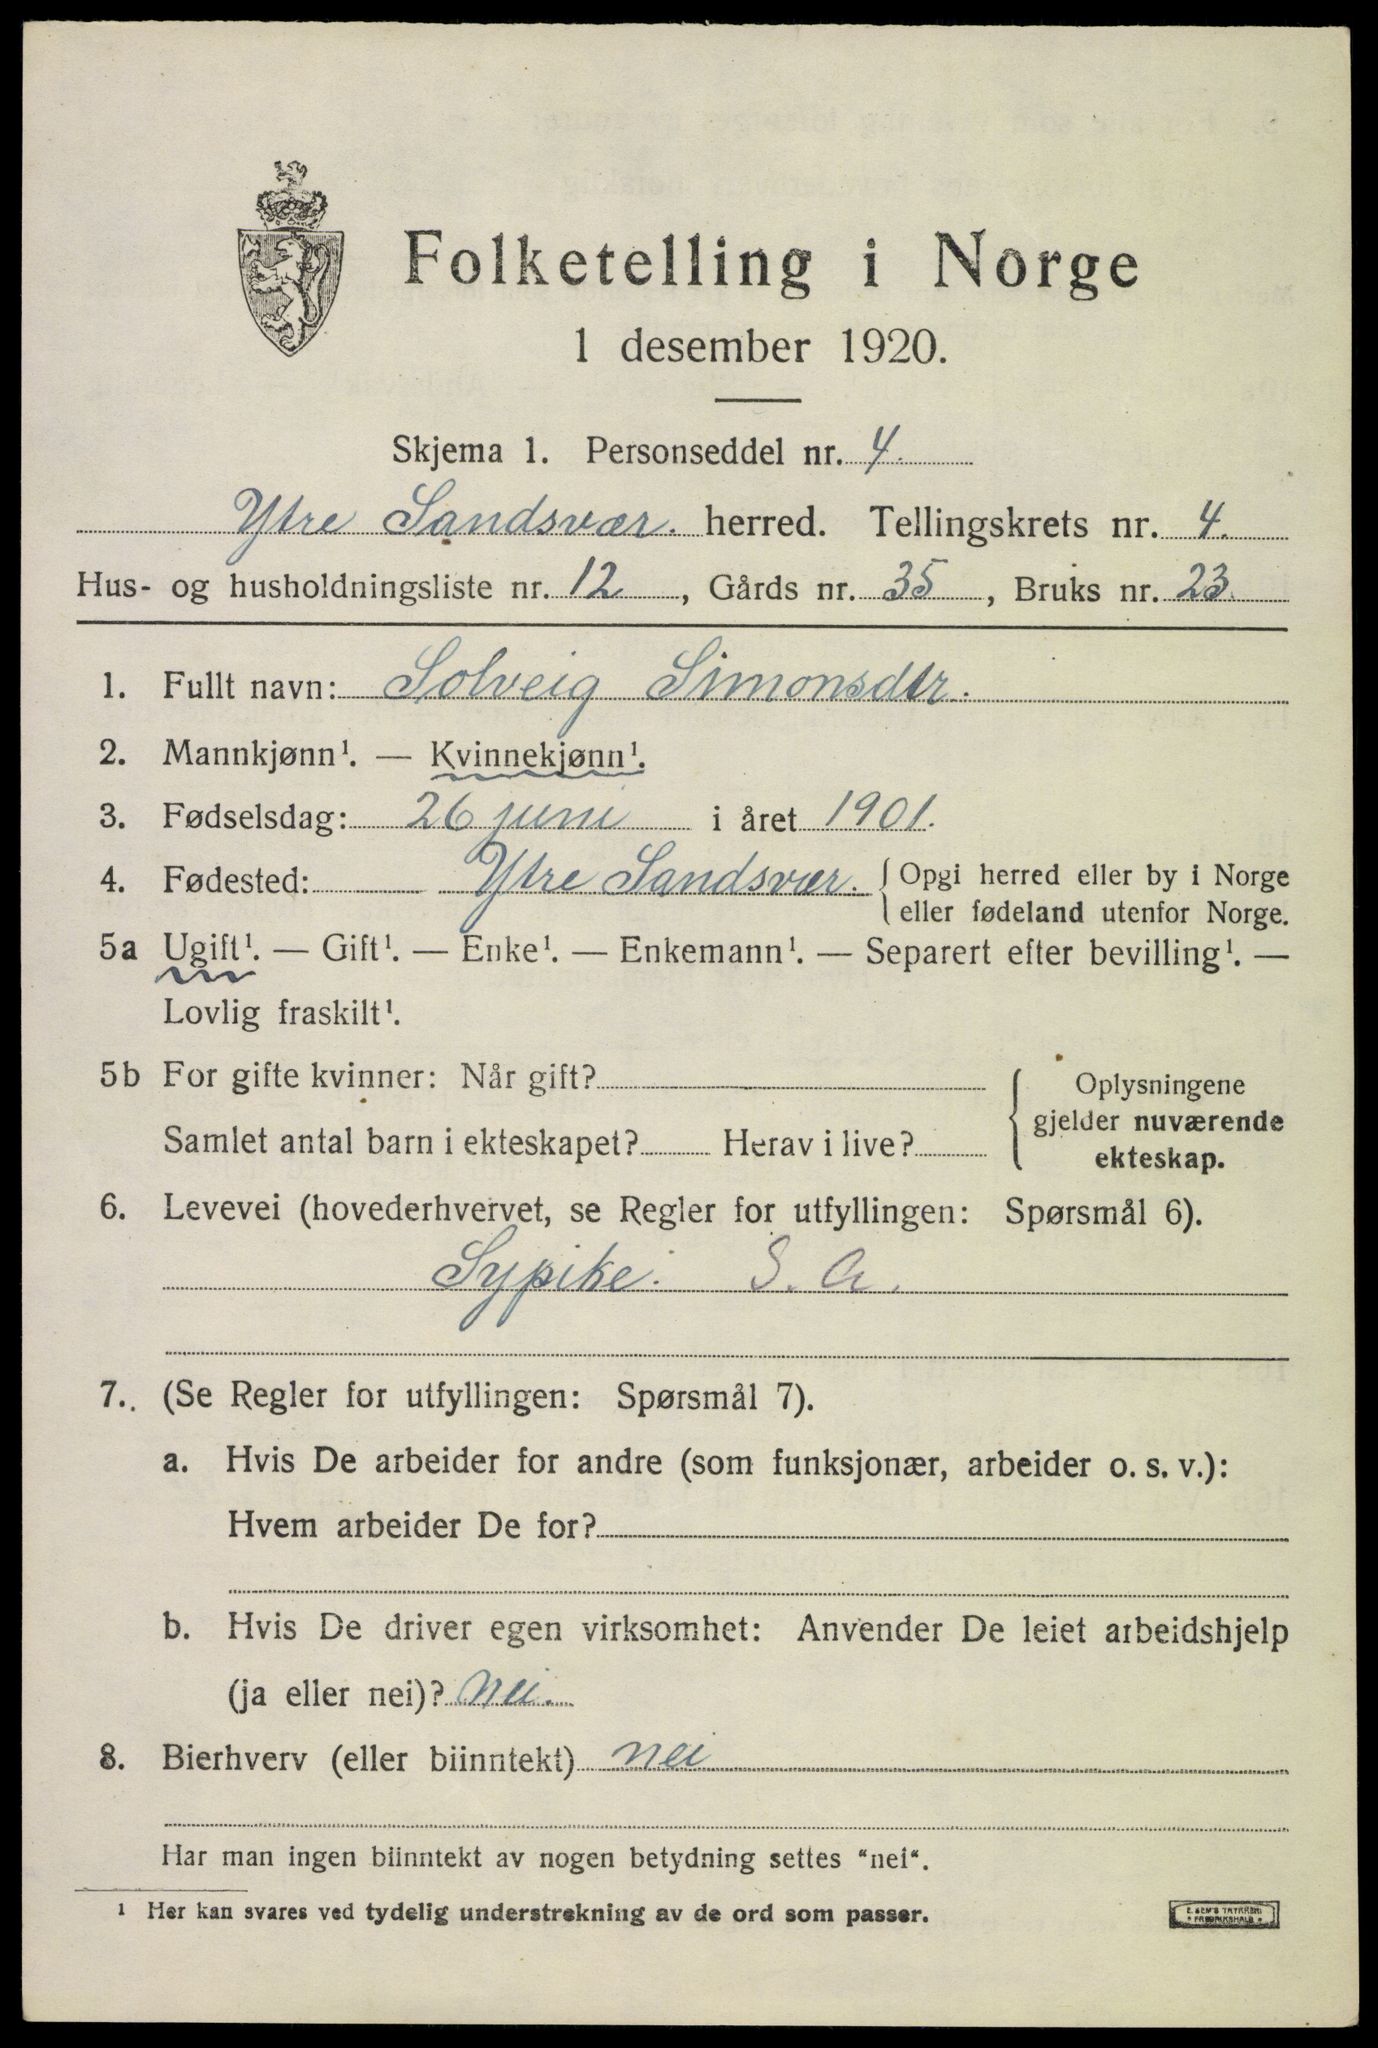 Folketelling i Norge
1 desember 1920.
Skjema 1. Personseddel nr. 4.
Ytre Sandsvær. herred. Tellingskrets nr. 4.
Hus- og husholdningsliste nr. 12, Gårds nr. 35, Bruks nr. 23.
1. Fullt navn: Solveig Simonsdtr.
2. Mannkjønn¹. — Kvinnekjønn¹.
3. Fødselsdag: 26 juni i året 1901.
4. Fødested: Ytre Sandsvær. { Opgi herred eller by i Norge
eller fødeland utenfor Norge.
5a Ugift¹. — Gift¹. — Enke¹. — Enkemann¹. — Separert efter bevilling¹. —
Lovlig fraskilt¹.
5b For gifte kvinner: Når gift?
Samlet antal barn i ekteskapet? Herav i live?
Oplysningene
gjelder nuværende
ekteskap.
6. Levevei (hovederhvervet, se Regler for utfyllingen: Spørsmål 6).
Sypike. S. A.
7. (Se Regler for utfyllingen: Spørsmål 7).
a. Hvis De arbeider for andre (som funksjonær, arbeider o. s. v.):
Hvem arbeider De for?
b. Hvis De driver egen virksomhet: Anvender De leiet arbeidshjelp
(ja eller nei)? nei.
8. Bierhverv (eller biinntekt) nei
Har man ingen biinntekt av nogen betydning settes "nei".
¹ Her kan svares ved tydelig understrekning av de ord som passer.
E. SEM'S TRYKKERI
* FREDRIKSHALD *